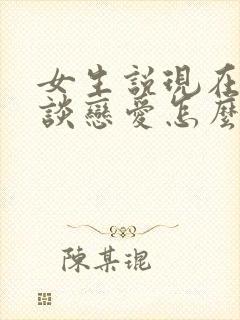 女生説現在
談戀愛怎麼
陳某琨